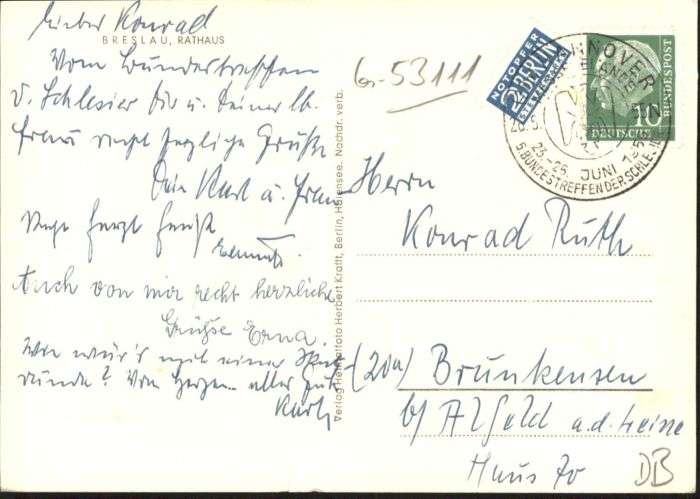 Lieber Konrad
BRESLAU, RATHAUS
Vom Bundestreffen
d. Schlesier Dir u. Deiner lb.
Frau recht herzliche Grüße
Dein Kurt u. Frau
Recht herzl. Grüße
Auch von mir recht herzliche
Grüsse Erna.
Wie wär's mal einer Skat-
runde? Von Herzen alles Gute
Kurt
Verlag Heimatfoto Herbert Krafft, Berlin, Halensee. Nachdr. verb.
Gr-53111
NOTOPFER
2 BERLIN
STEUERMARKE
HANNOVER
23.-26. JUNI 195
5. BUNDESTREFFEN DER SCHLESIER
10
DEUTSCHE
BUNDESPOST
Herrn
Konrad Ruth
(20a) Brunkensen
b/ Alfeld a.d. Leine
Haus 70
DB